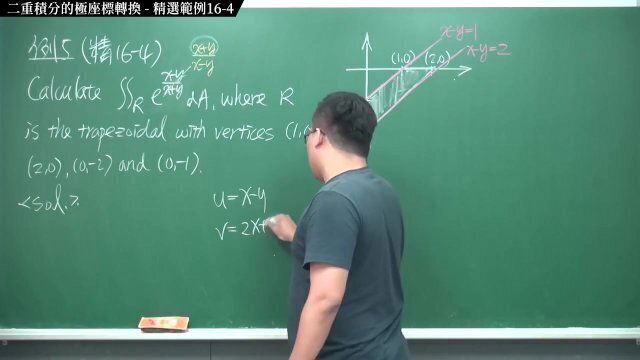 二重積分的極座標轉換 - 精選範例16-4
例5 (精16-4)
x+y
x-y
Calculate ∬_R e^{\frac{x-y}{x+y}} dA, where R
is the trapezoidal with vertices (1,0
(2,0), (0,-2) and (0,-1).
<sol.>
u = x-y
v = 2x+
x-y=1
x-y=2
(1,0)
(2,0)